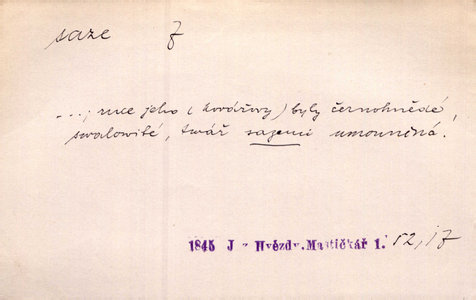 saze f
...; ruce jeho (kovářovy) byly černohnědé,
svalowité, twář sazemi umouněná.
1845 J z Hvězdy. Mastičkář 1. 52, 17